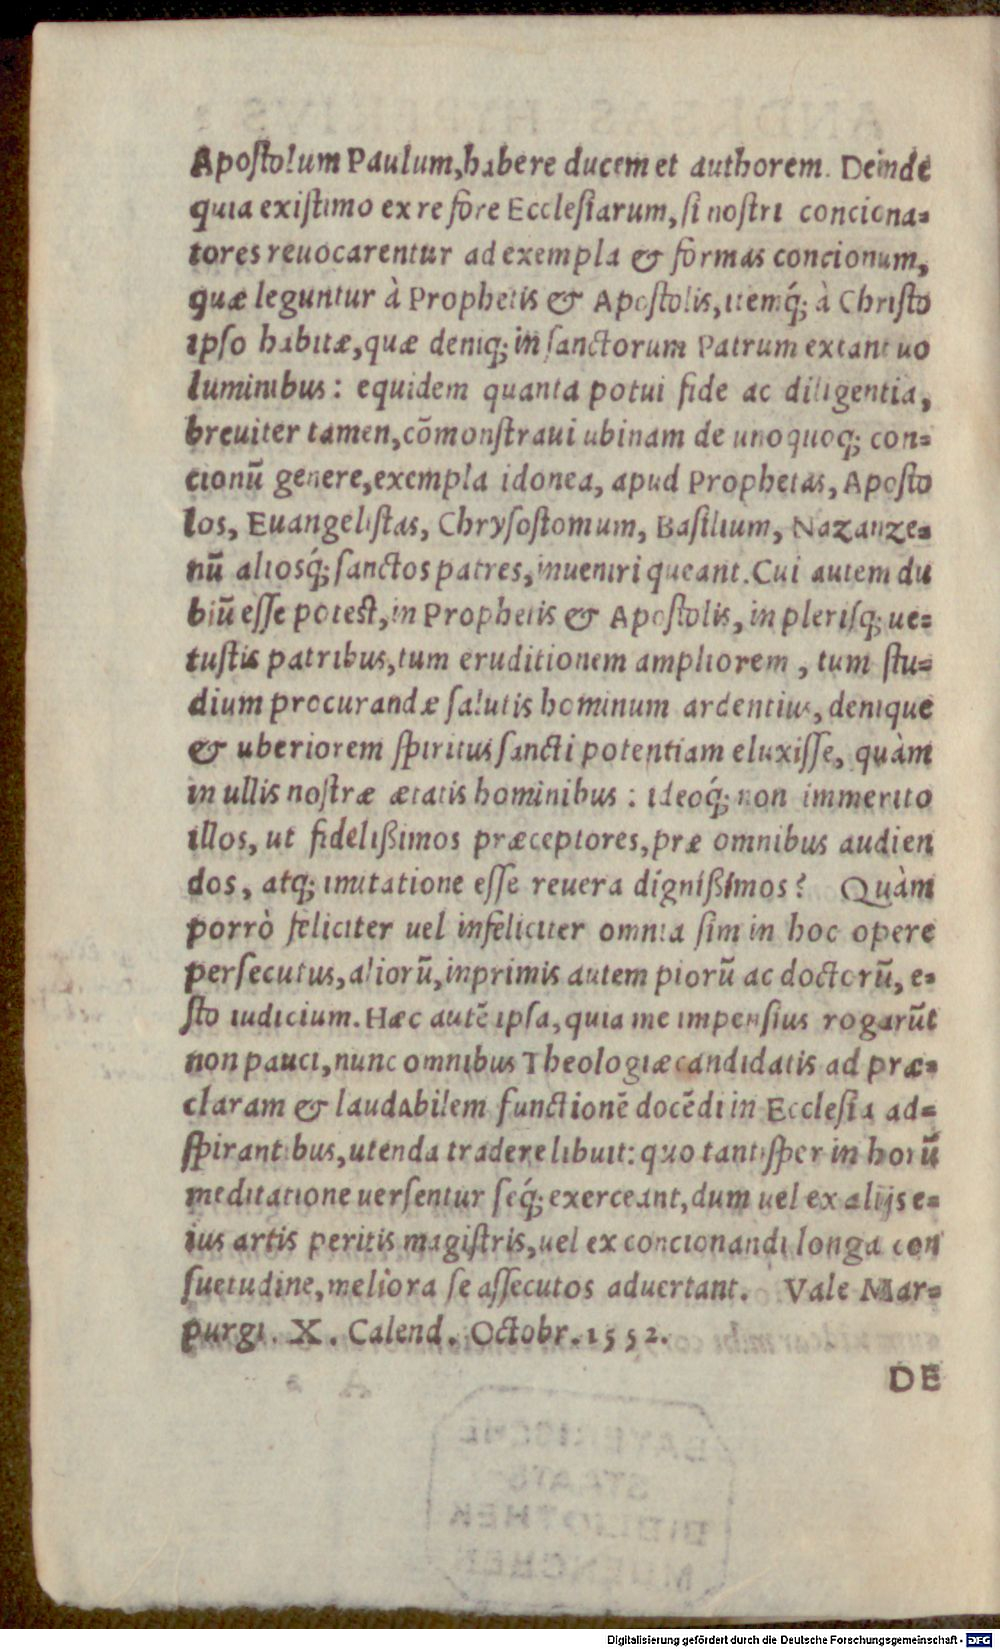 Apostolum Paulum, habere ducem et authorem. Deinde
quia existimo ex re fore Ecclesiarum, si nostri conciona=
tores reuocarentur ad exempla & formas concionum,
quæ leguntur à Prophetis & Apostolis, itemq́; à Christo
ipso habitæ, quæ deniq; in sanctorum Patrum extant uo
luminibus: equidem quanta potui fide ac diligentia,
breuiter tamen, cõmonstraui ubinam de unoquoq; con=
cionũ genere, exempla idonea, apud Prophetas, Aposto
los, Euangelistas, Chrysostomum, Basilium, Nazanze=
nũ aliosq́; sanctos patres, inueniri queant. Cui autem du
biũ esse potest, in Prophetis & Apostolis, in plerisq; ue=
tustis patribus, tum eruditionem ampliorem, tum stu=
dium procurandæ salutis hominum ardentius, denique
& uberiorem spiritus sancti potentiam eluxisse, quàm
in ullis nostræ ætatis hominibus: ideoq́; non immerito
illos, ut fidelißimos præceptores, præ omnibus audien
dos, atq; imitatione esse reuera dignißimos? Quàm
porrò feliciter uel infeliciter omnia sim in hoc opere
persecutus, aliorũ, inprimis autem piorũ ac doctorũ, e=
sto iudicium. Hæc autẽ ipsa, quia me impensius rogarũt
non pauci, nunc omnibus Theologiæ candidatis ad præ=
claram & laudabilem functionẽ docẽdi in Ecclesia ad=
spirantibus, utenda tradere libuit: quo tantisper in horũ
meditatione uersentur seq́; exerceant, dum uel ex alijs e=
ius artis peritis magistris, uel ex concionandi longa con
suetudine, meliora se assecutos aduertant. Vale Mar=
purgi. X. Calend. Octobr. 1552.
DE
BAYERISCHE
STAATS-
BIBLIOTHEK
MUENCHEN
Digitalisierung gefördert durch die Deutsche Forschungsgemeinschaft - DFG